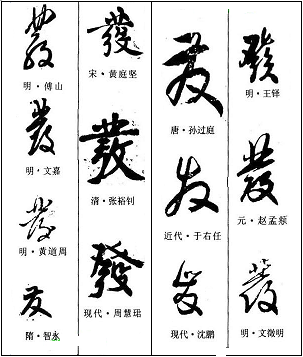 發
明·傅山
發
明·文嘉
發
明·黄道周
發
隋·智永
發
宋·黄庭坚
發
清·张裕钊
發
现代·周慧珺
發
唐·孙过庭
發
近代·于右任
發
现代·沈鹏
發
明·王铎
發
元·赵孟頫
發
明·文徵明